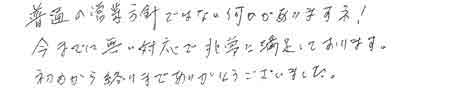 普通の営業方針ではない何かがありますネ!
今までに無い対応で非常に満足しております。
初めから終りまでありがとうございました。